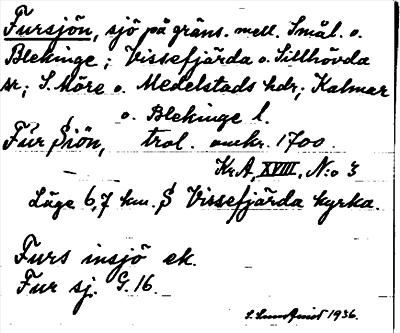 Fursjön, sjö på gräns. mell. Smål. o.
Blekinge; Vissefjärda o. Sillhövda
snr; S. Möre o. Medelstads hdr; Kalmar
o. Blekinge l.
Fur Siön, trol. omkr. 1700
Kr A, XVIII, N:o 3
Läge 6,7 km. S Vissefjärda kyrka.
Furs insjö ek.
Fur sj. G. 16.
1936.